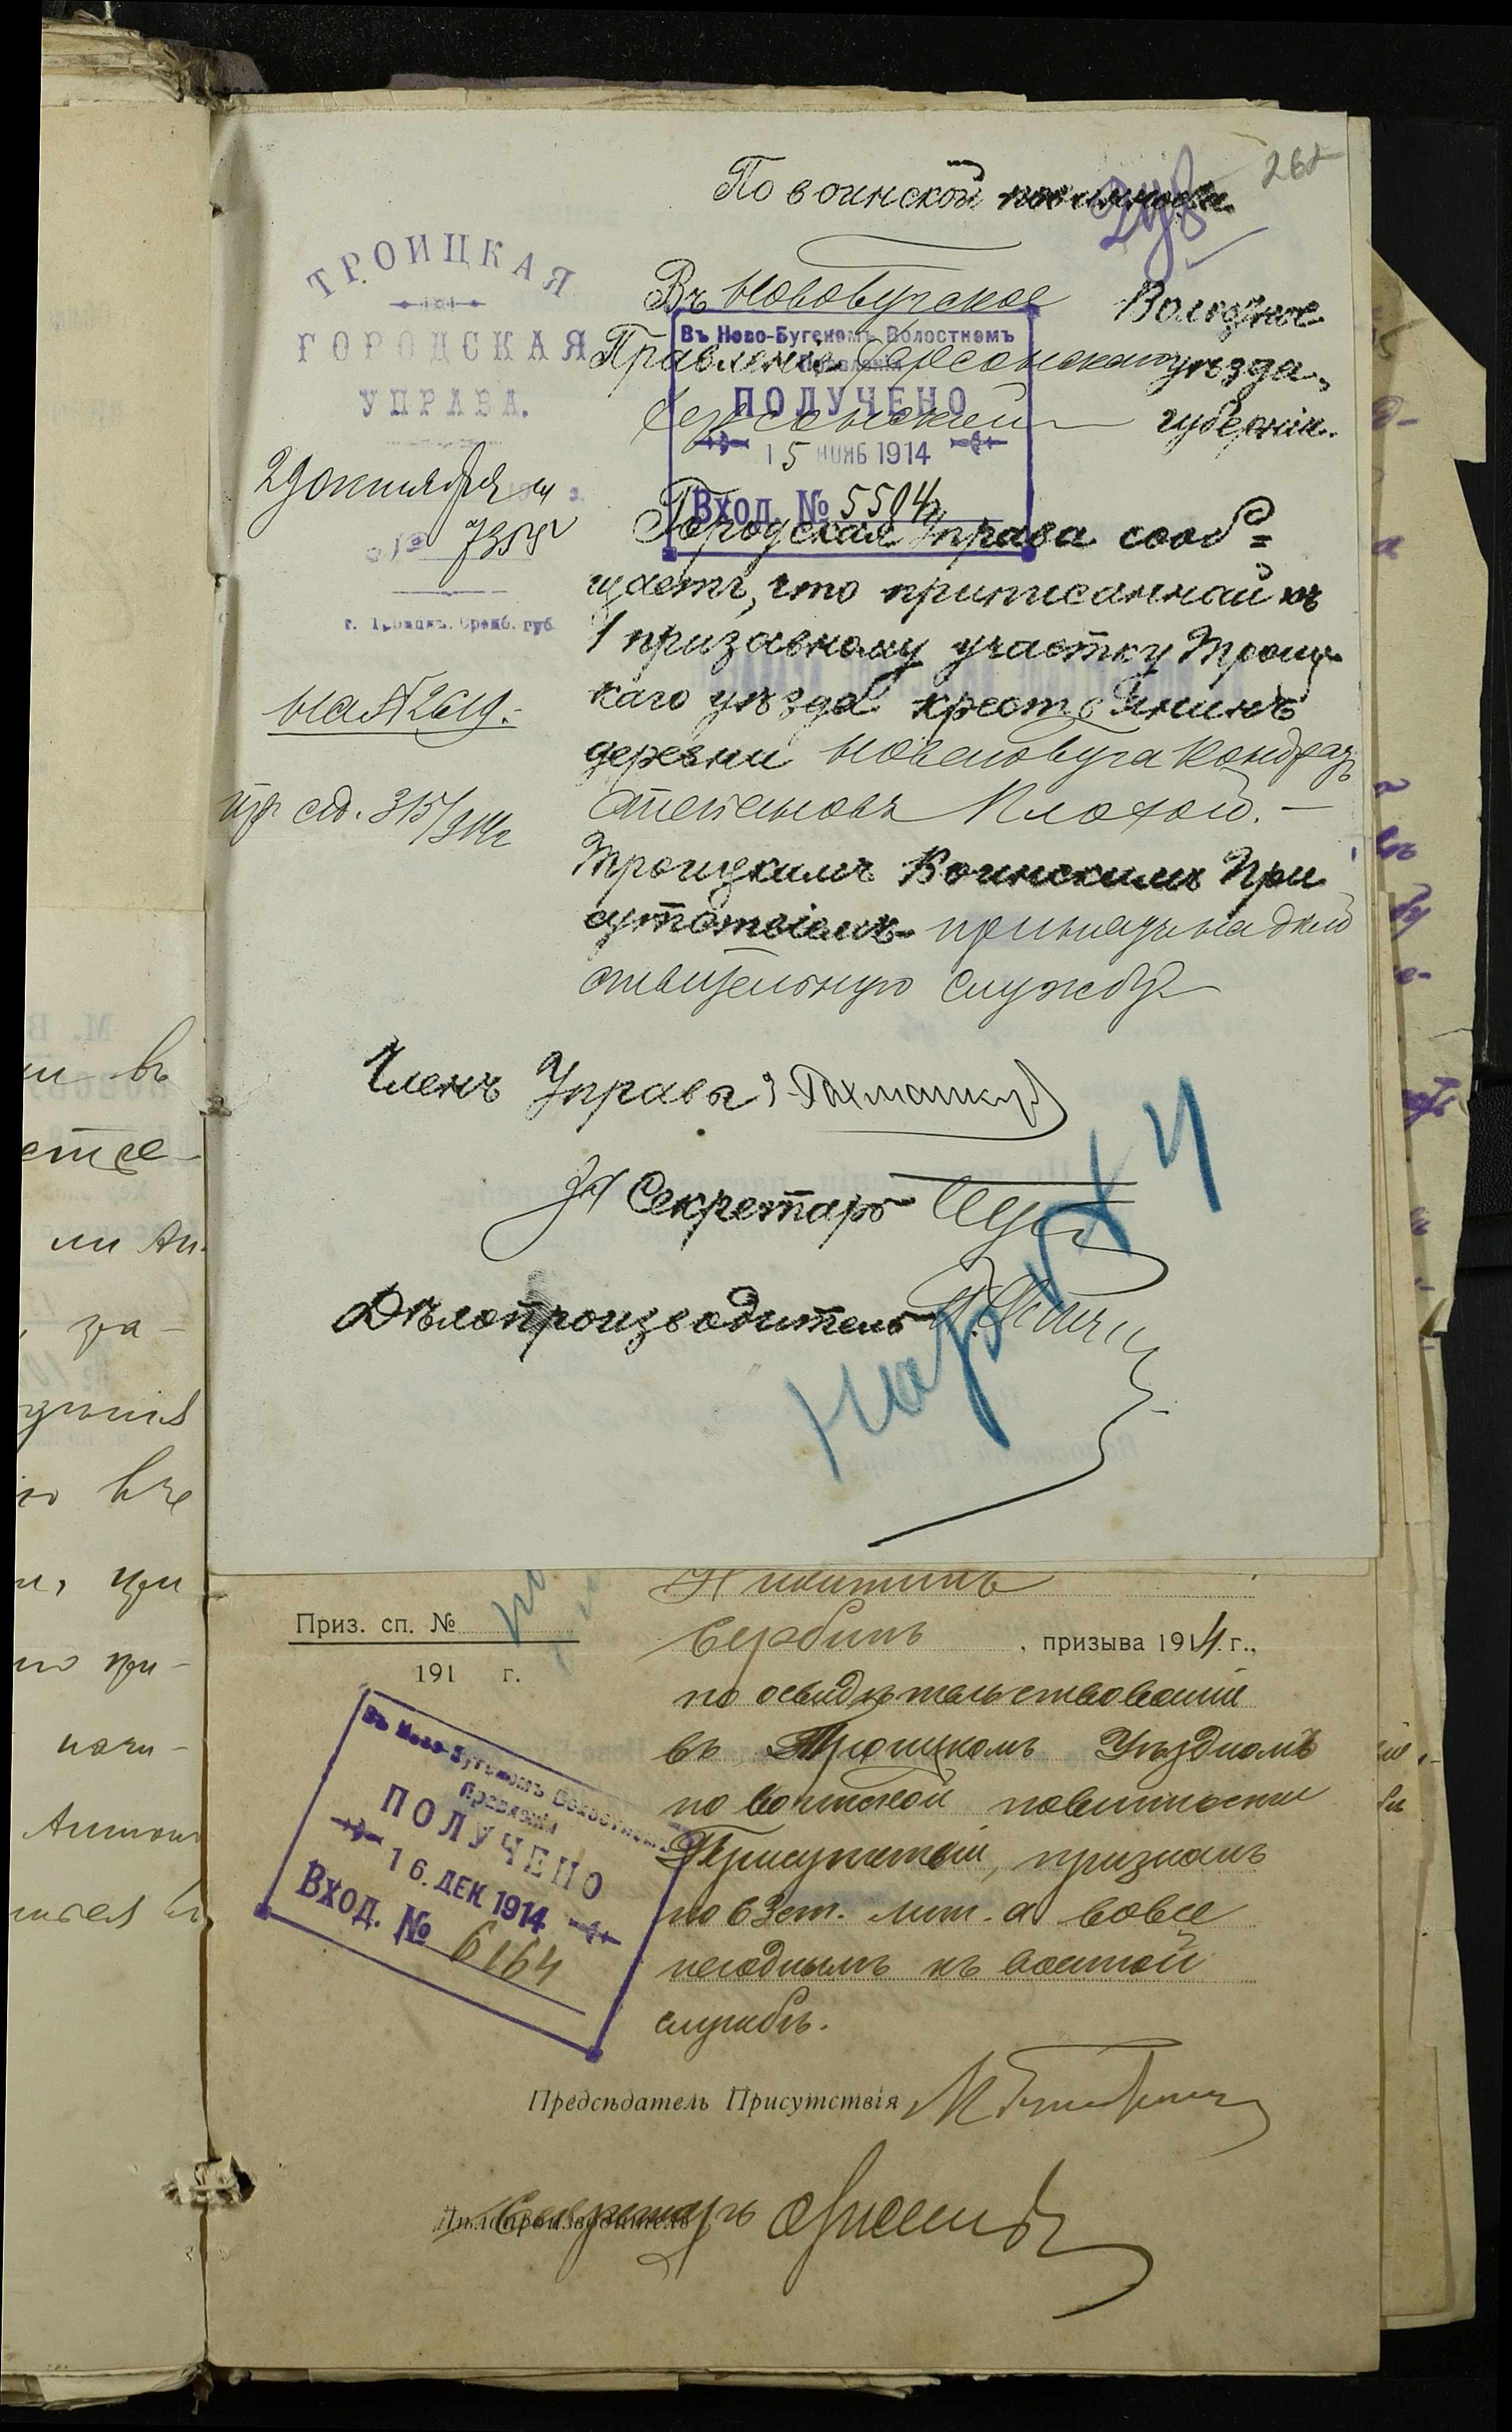 262
По воинской повинности.
ТРОИЦКАЯ
ГОРОДСКАЯ
УПРАВА.
29 октября
№ 7355
г. Троицкъ, Оренб. губ.
на № 2619.
Въ Новобугское Волостное
Правленіе Херсонскаго уѣзда,
Херсонской губерніи.
Въ Ново-Бугскомъ Волостномъ
Правленіи
ПОЛУЧЕНО
15 НОЯБ 1914
Вход. № 5504
Городская Управа сооб=
щаетъ, что приписанный къ
1 призывному участку Троиц-
каго уѣзда крестьянинъ
деревни Новаго Буга Кондратъ
Степановъ Плохой. —
Троицкимъ Воинскимъ При
сутствіемъ принятъ на дѣй
ствительную службу
Членъ Управы
За Секретарь
Дѣлопроизводитель
Наряд 4
Никитинъ
Приз. сп. №
191 г.
Сербинъ, призыва 1914 г.,
по освидѣтельствованіи
въ Троицкомъ Уѣздномъ
по воинской повинности
Присутствіи, признанъ
по 63 ст. лит. а вовсе
негоднымъ къ военной
службѣ.
Въ Ново-Бугскомъ Волостномъ
Правленіи
ПОЛУЧЕНО
16. ДЕК. 1914
Вход. № 6164
Предсѣдатель Присутствія
Дѣлопроизводитель
Секретарь